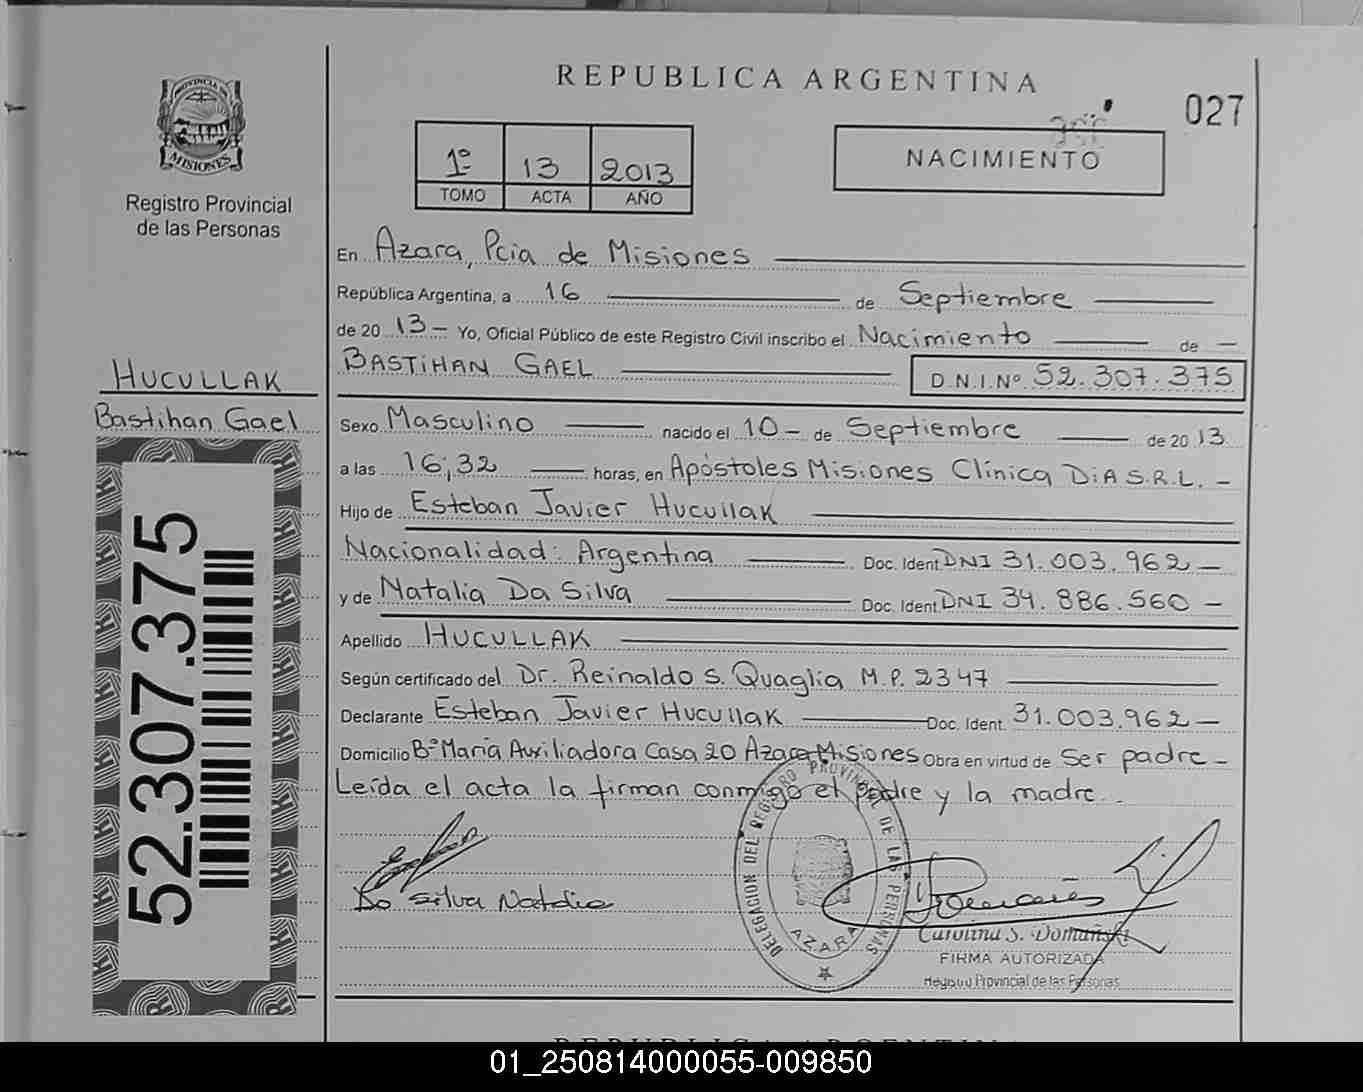 REPUBLICA ARGENTINA
027
PROVINCIA DE
MISIONES
Registro Provincial
de las Personas
1º 13 2013
TOMO ACTA AÑO
NACIMIENTO
En Azara, Pcia de Misiones
República Argentina, a 16 de Septiembre
de 20 13 - Yo, Oficial Público de este Registro Civil inscribo el Nacimiento de -
BASTIHAN GAEL D.N.I.Nº 52.307.375
HUCULLAK
Bastihan Gael
52.307.375
Sexo Masculino nacido el 10 - de Septiembre de 20 13
a las 16;32 horas, en Apóstoles Misiones Clínica DiA S.R.L. -
Hijo de Esteban Javier Hucullak
Nacionalidad: Argentina Doc. Ident DNI 31.003.962 -
y de Natalia Da Silva Doc. Ident DNI 34.886.560 -
Apellido HUCULLAK
Según certificado del Dr. Reinaldo S. Quaglia M.P. 2347
Declarante Esteban Javier Hucullak Doc. Ident. 31.003.962 -
Domicilio Bº María Auxiliadora Casa 20 Azara Misiones Obra en virtud de Ser padre -
Leída el acta la firman conmigo el padre y la madre.
Da Silva Natalia
DELEGACION DEL REGISTRO PROVINCIAL DE LAS PERSONAS
AZARA
Carolina S. Domañski
FIRMA AUTORIZADA
Registro Provincial de las Personas
REPUBLICA ARGENTINA
01_250814000055-009850